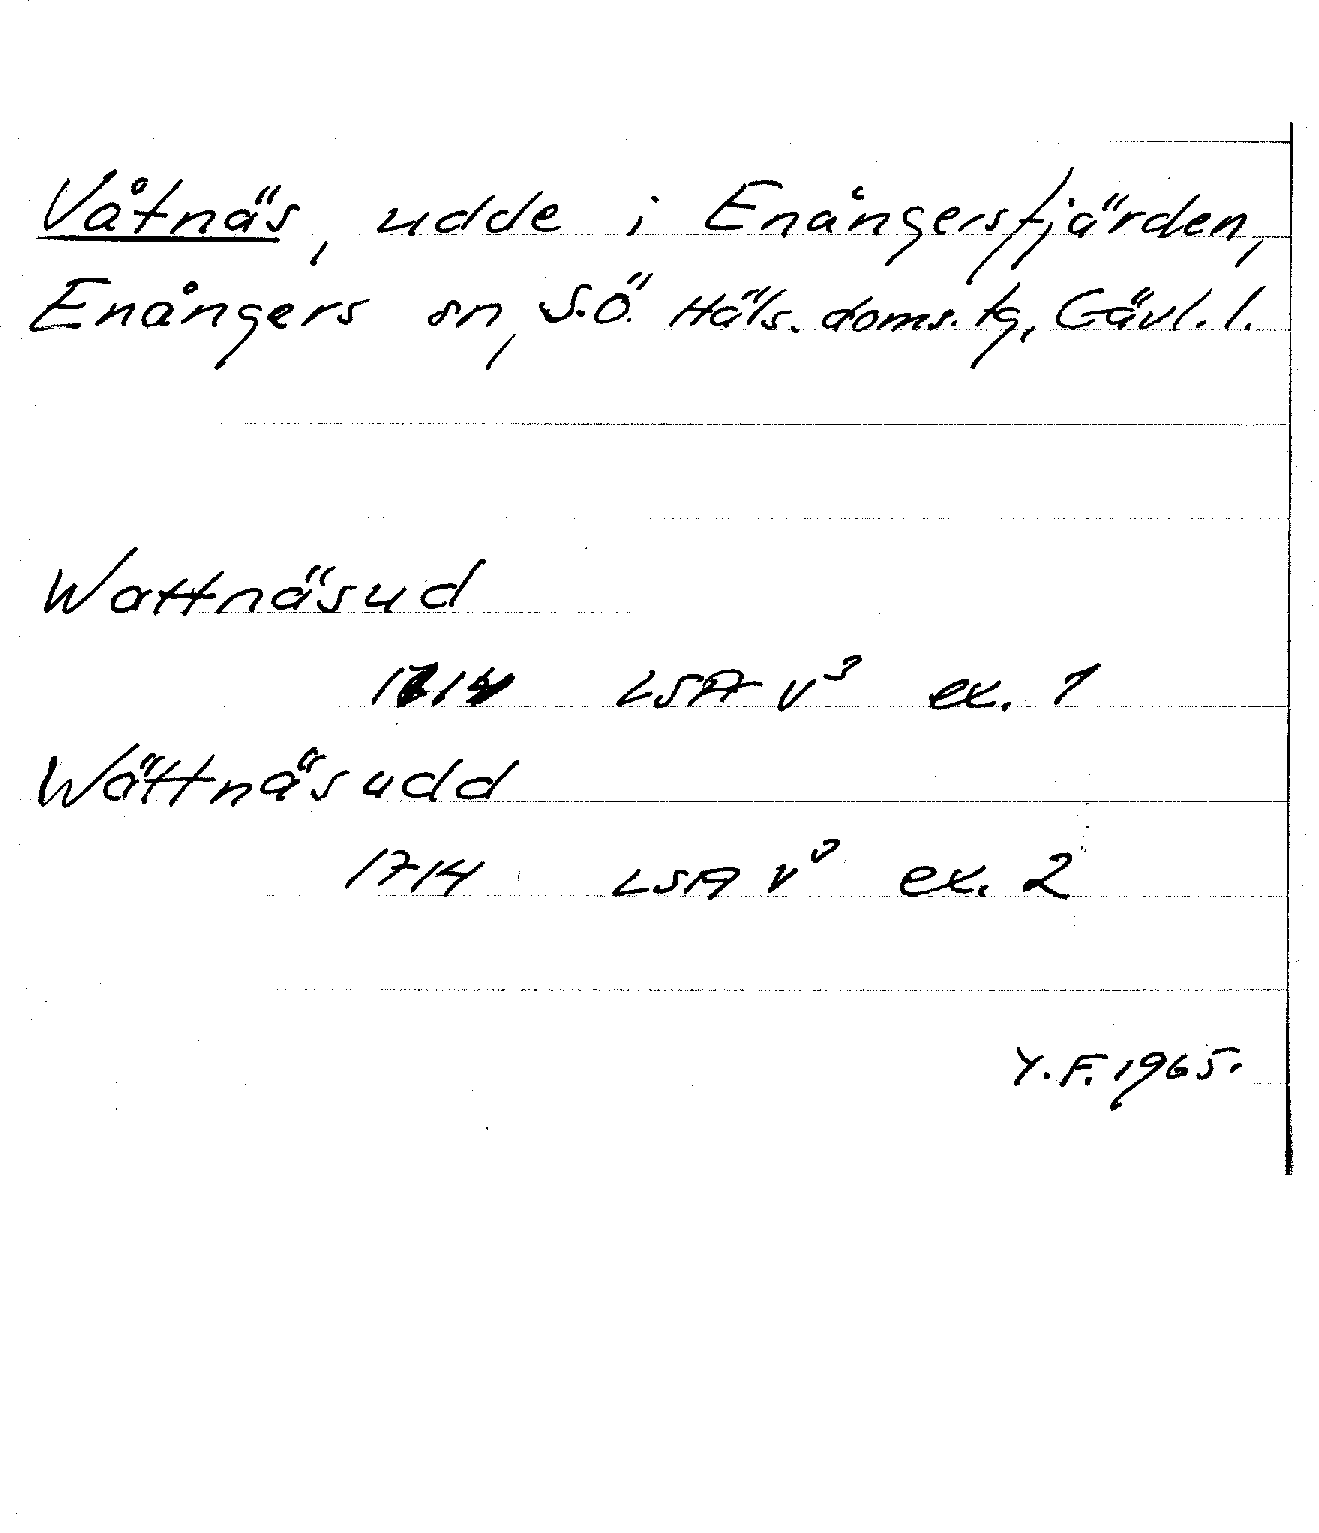 Våtnäs, udde i Enångersfjärden,
Enångers sn, S.Ö. Häls. doms. tg, Gävl. l.
Wattnäsud
1714 LSA V³ ex. 1
Wättnäsudd
1714 LSA V³ ex. 2
Y.F. 1965.